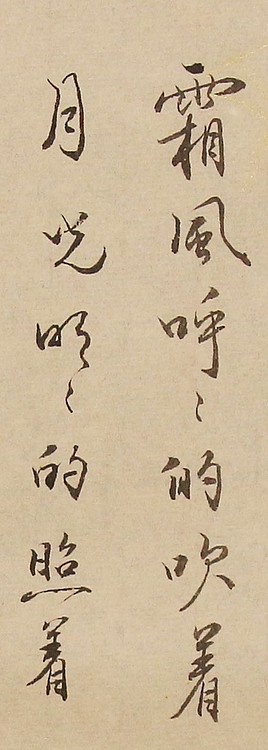 霜風呼〻的吹着
月光明〻的照着